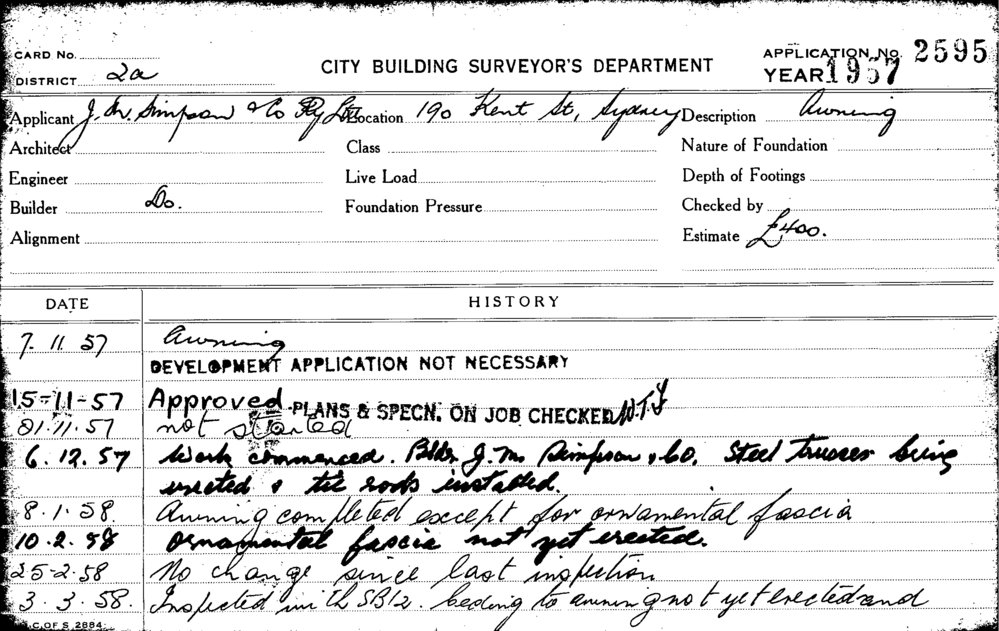 CARD No.
DISTRICT 2a
CITY BUILDING SURVEYOR'S DEPARTMENT
APPLICATION No. 2595
YEAR 1957
Applicant J. M. Simpson & Co Pty Ltd Location 190 Kent St, Sydney Description Awning
Architect Class Nature of Foundation
Engineer Live Load Depth of Footings
Builder Do. Foundation Pressure Checked by
Alignment Estimate £400.
DATE HISTORY
7. 11. 57 Awning
DEVELOPMENT APPLICATION NOT NECESSARY
15-11-57 Approved PLANS & SPECN. ON JOB CHECKED
21.11.57 not started
6.12.57 Work commenced. Bldr J. M. Simpson & Co. Steel trusses being
erected & tie rods installed.
8.1.58. Awning completed except for ornamental fascia
10.2.58 Ornamental fascia not yet erected.
25-2-58 No change since last inspection
3.3.58. Inspected with SB12. to awning not yet erected and
C. OF S. 2884